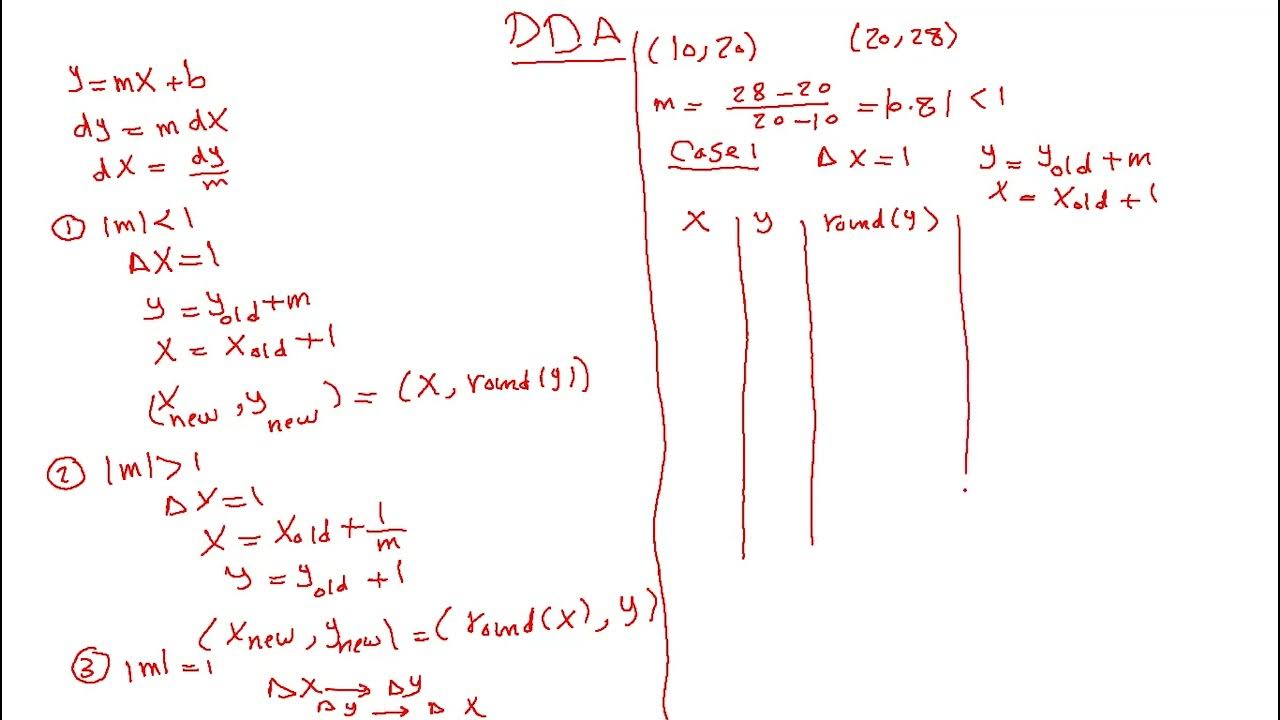 DDA
y = mx + b
dy = m dx
dx = dy/m
① |m| < 1
Δx = 1
y = y_old + m
x = x_old + 1
(x_new, y_new) = (x, round(y))
② |m| > 1
Δy = 1
x = x_old + 1/m
y = y_old + 1
(x_new, y_new) = (round(x), y)
③ |m| = 1
Δx → Δy
Δy → Δx
(10, 20) (20, 28)
m = 28 - 20 / 20 - 10 = |0.8| < 1
Case 1 Δx = 1 y = y_old + m
x = x_old + 1
x | y | round(y) |